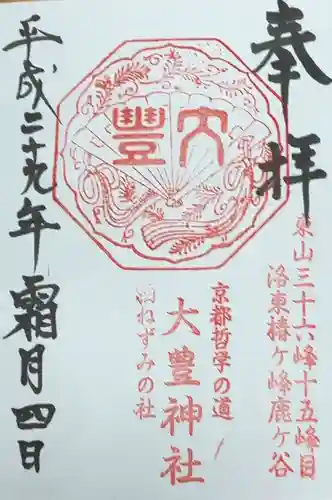 奉拝
東山三十六峰十五峰目
洛東椿ヶ峰鹿ヶ谷
大豐
京都哲学の道
大豊神社
狛ねずみの社
平成二十九年霜月四日